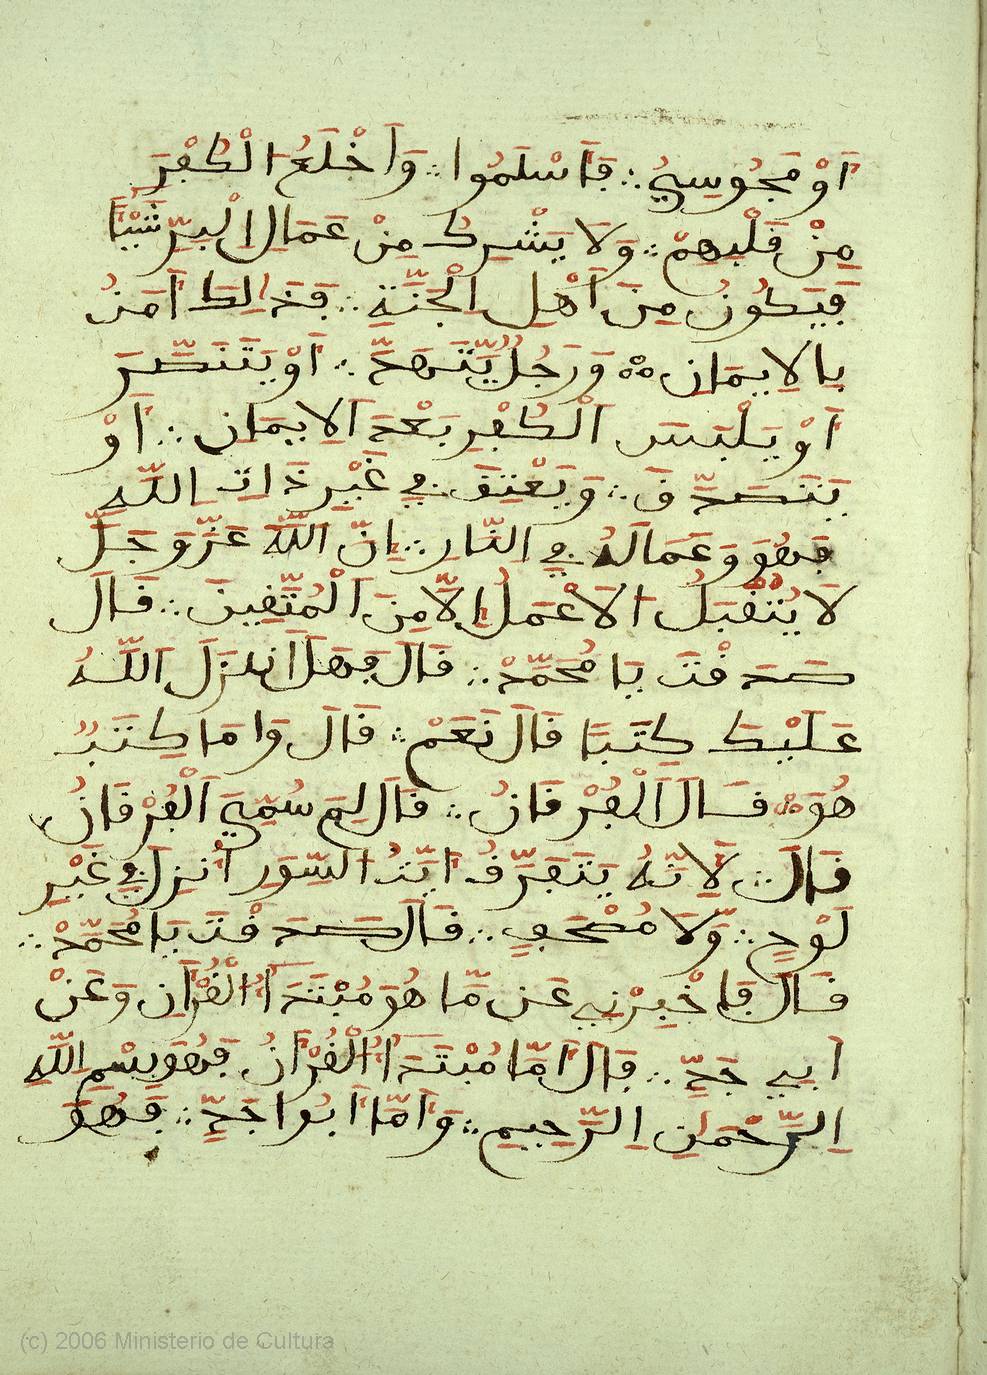 اَوْ مَجُوسِيُّ ؞ فَاَسْلَمُوا ؞ وَاَخْلَعُ الْكُفْرَ
مِنْ قَلْبِهِمْ ؞ وَلَا يَشْرِكُ مِنْ عَمَالِ الْبِرِّ شَيْئًا
فَيَكُونُ مِنَ اَهْلِ الْجَنَّةِ ؞ فَذَالِكَ اَمَنُ
بِالِايمَانِ ؞ وَرَجُلٌ يَّتَهَدَّ ؞ اَوْ يَتَنَصَّرَ
اَوْ يَلْبَسَ الْكُفْرِ بَعْدَ الِايمَانِ ؞ اَوْ
يَتَصَدَّقَ ؞ وَيَعْتِقَ فِي غَيْرِ ذَاتِ اللَّهِ
فَهُوَ وَعَمَالَهُ فِي النَّارِ ؞ اِنَّ اللَّهَ عَزَّ وَجَلَّ
لَا يُتْقَبَلُ الَاعْمَلُ اِلَّا مِنَ الْمُتَّقِينَ ؞ قَالَ
صَدَقْتَ يَا مُحَمَّدْ ؞ قَالَ فَهَلْ اَنزَلَ اللَّهُ
عَلَيْكَ كِتَبًا قَالَ نَعَمْ ؞ قَالَ وَامَا كِتَبٌ
هُوَ ؞ قَالَ الْفُرْقَانُ ؞ قَالَ لِمَ سُمِّيَ الْفُرْقَانُ
قَالَ ؞ لَانَّهُ يَتَفَرَّقُ اَيَتُ السُّوَرِ اُنزِلَ فِي غَيْرِ
لَوْحٍ ؞ وَّلَا مُصْحَفٍ ؞ قَالَ صَدَقْتَ يَا مُحَمَّدْ ؞
قَالَ فَاخْبِرْنِي عَن مَّا هُوَ مُبْتَدَاُ الْقُرْآنِ وَعَنْ
اَبِي جَدٍّ ؞ قَالَ اَمَّا مُبْتَدَاُ الْقُرْآنُ فَهُوَ بِسْمِ اللَّهِ
الرَّحْمَنِ الرَّحِيمِ ؞ وَاَمَّا اَبُوا جَدٍّ ؞ فَهُوَ
(c) 2006 Ministerio de Cultura